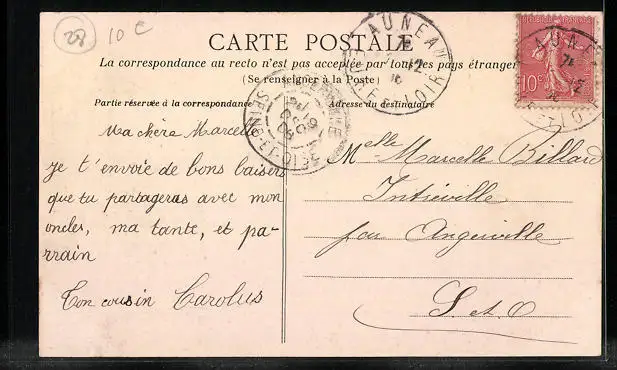 28
10 c
CARTE POSTALE
La correspondance au recto n'est pas acceptée par tous les pays étranger
(Se renseigner à la Poste)
Partie réservée à la correspondance
Adresse du destinataire
AUNEAU
EURE-ET-LOIR
SEINE-ET-OISE
10c
Ma chère Marcelle
Je t'envoie de bons baisers
que tu partageras avec mon
oncles, ma tante, et pa-
rrain
Ton cousin Carolus
Melle Marcelle Billard
Intréville
par Angerville
S. et O